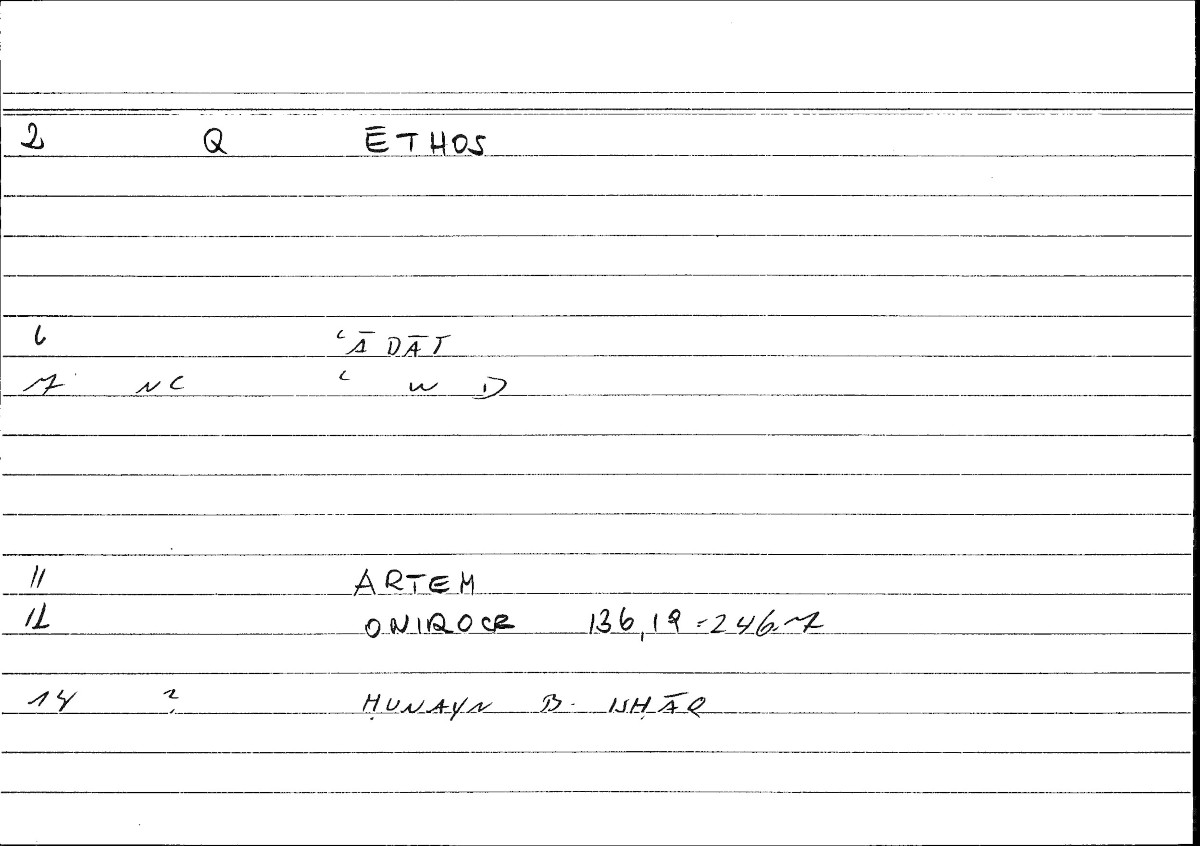 2 Q ĒTHOS
6 ʿĀDĀT
7 NC ʿ W D
11 ARTEM
12 ONIROCR 136,19 = 246.7
14 ? ḤUNAYN B. ISḤĀQ